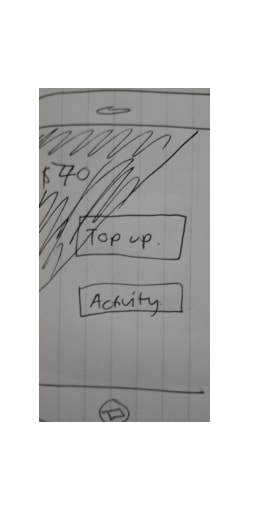 $70
Top up.
Activity